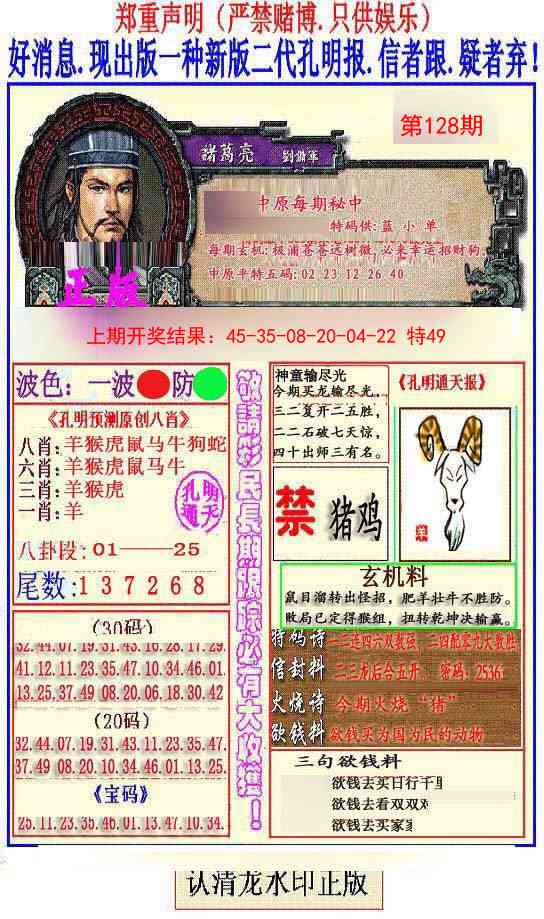 郑重声明（严禁赌博.只供娱乐）
好消息.现出版一种新版二代孔明报.信者跟.疑者弃！
第128期
諸葛亮
中原每期秘中
特码供:蓝 小 单
每期玄机:极浦苍苍远树微,必来幸运招财狗.
中原平特五码:02 23 12 26 40
正版
上期开奖结果：45-35-08-20-04-22 特49
波色：一波 防
《孔明预测原创八肖》
八肖:羊猴虎鼠马牛狗蛇
六肖:羊猴虎鼠马牛
三肖:羊猴虎
一肖:羊
孔明
通天
八卦段:01——25
尾数:137268
(30码)
32.44.07.19.31.43.16.28.17.29.
41.12.11.23.35.47.10.34.46.01
13.25.37.49.08.20.06.18.30.42
(20码)
32.44.07.19.31.43.11.23.35.47.
37.49.08.20.10.34.46.01.13.25.
《宝码》
25.11.23.35.46.01.13.47.10.34.
敬請彩民長期跟踪必有大收獲！
神童输尽光
今期买龙输尽光,
三二复开二五胜,
二二石破七天惊,
四十出师三有名。
《孔明通天报》
禁 猪鸡
羊
玄机料
鼠目溜转出怪招，肥羊壮牛不胜防。
败局已定得猴组，扭转乾坤决输赢。
特码诗 一二连四六双数强，三四配零九大数胜
信封料 二三龙后合五开. 密码: 2536.
火烧诗 今期火烧“猪”
欲钱料 欲钱买为国为民的动物
三句欲钱料
欲钱去买日行千里
欲钱去看双双对
欲钱去买家
认清龙水印正版